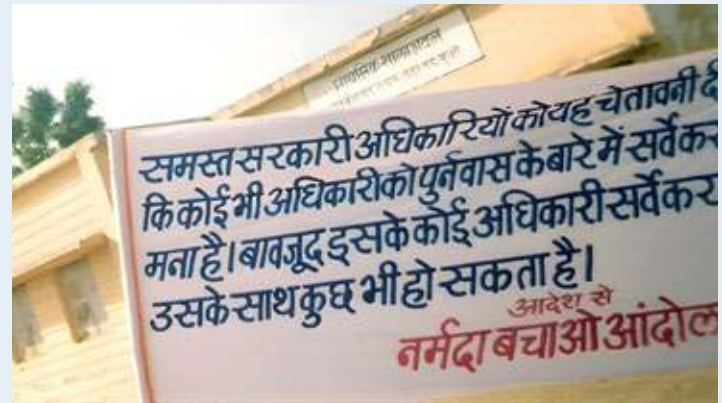 प्राथमिक शाला
समस्त सरकारी अधिकारियों को यह चेतावनी दी
कि कोई भी अधिकारी को पुर्नवास के बारे में सर्वे कर
मना है। बावजूद इसके कोई अधिकारी सर्वे कर
उसके साथ कुछ भी हो सकता है।
आदेश से
नर्मदा बचाओ आंदोल